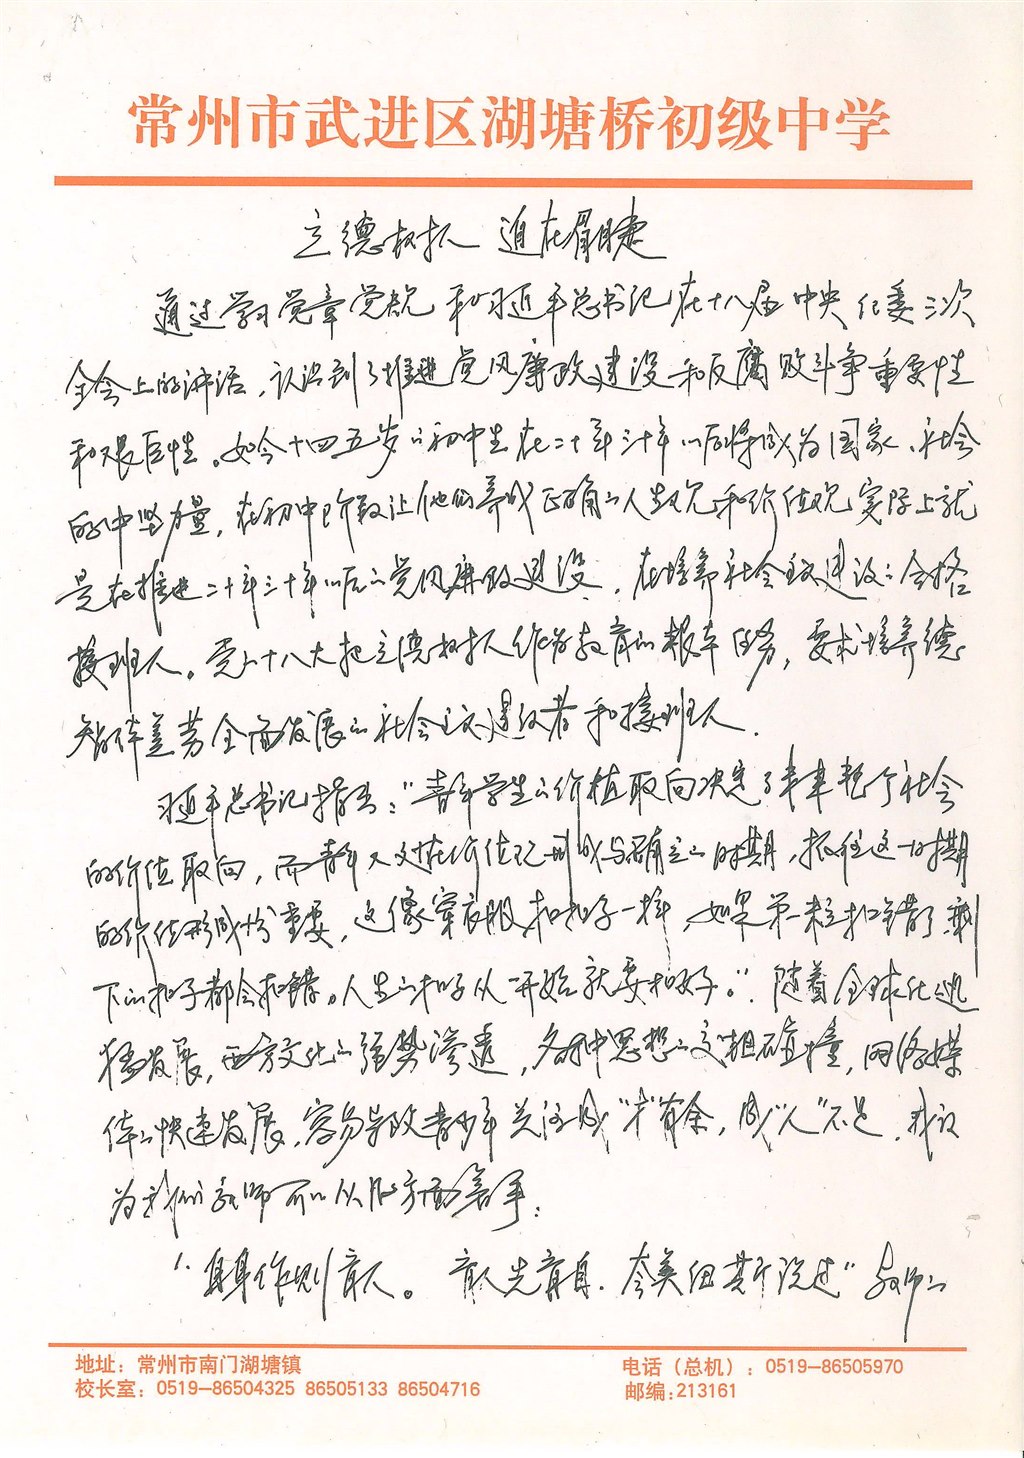 常州市武进区湖塘桥初级中学
立德树人 迫在眉睫
通过学习党章党规和习近平总书记在十八届中央纪委三次
全会上的讲话，认识到了推进党风廉政建设和反腐败斗争重要性
和艰巨性。如今十四五岁的初中生在二十年三十年以后将成为国家、社会
的中坚力量，在初中阶段让他们养成正确的人生观和价值观实际上就
是在推进二十年三十年以后的党风廉政建设，在培养社会主义建设的合格
接班人。党的十八大把立德树人作为教育的根本任务，要求培养德
智体美劳全面发展的社会主义建设者和接班人.
习近平总书记指出："青年学生的价值取向决定了未来整个社会
的价值取向，而青年人又处在价值观形成与确立的时期，抓住这一时期
的价值形成十分重要，这像穿衣服扣扣子一样，如果第一粒扣错了，剩
下的扣子都会扣错。人生的扣子从一开始就要扣好。"随着全球化迅
猛发展，西方文化的强势渗透，各种思想的交粗碰撞，网络媒
体的快速发展，容易导致青少年关注成"才"有余，成"人"不足，我认
为我们教师可以从几方面着手：
1. 身身作则育人。 育人先育自. 夸美纽斯说过"教师的
地址：常州市南门湖塘镇
校长室：0519-86504325 86505133 86504716
电话（总机）：0519-86505970
邮编:213161